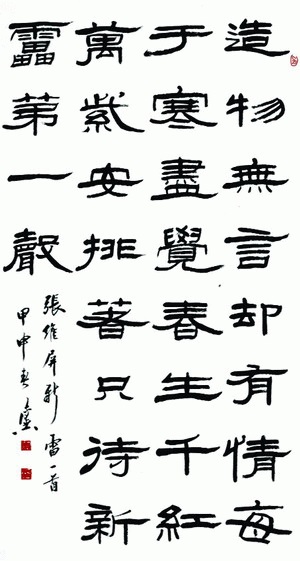 造物無言却有情每
于寒盡覺春生千紅
萬紫安排著只待新
靁第一聲
張維屏新雷一首
甲申春